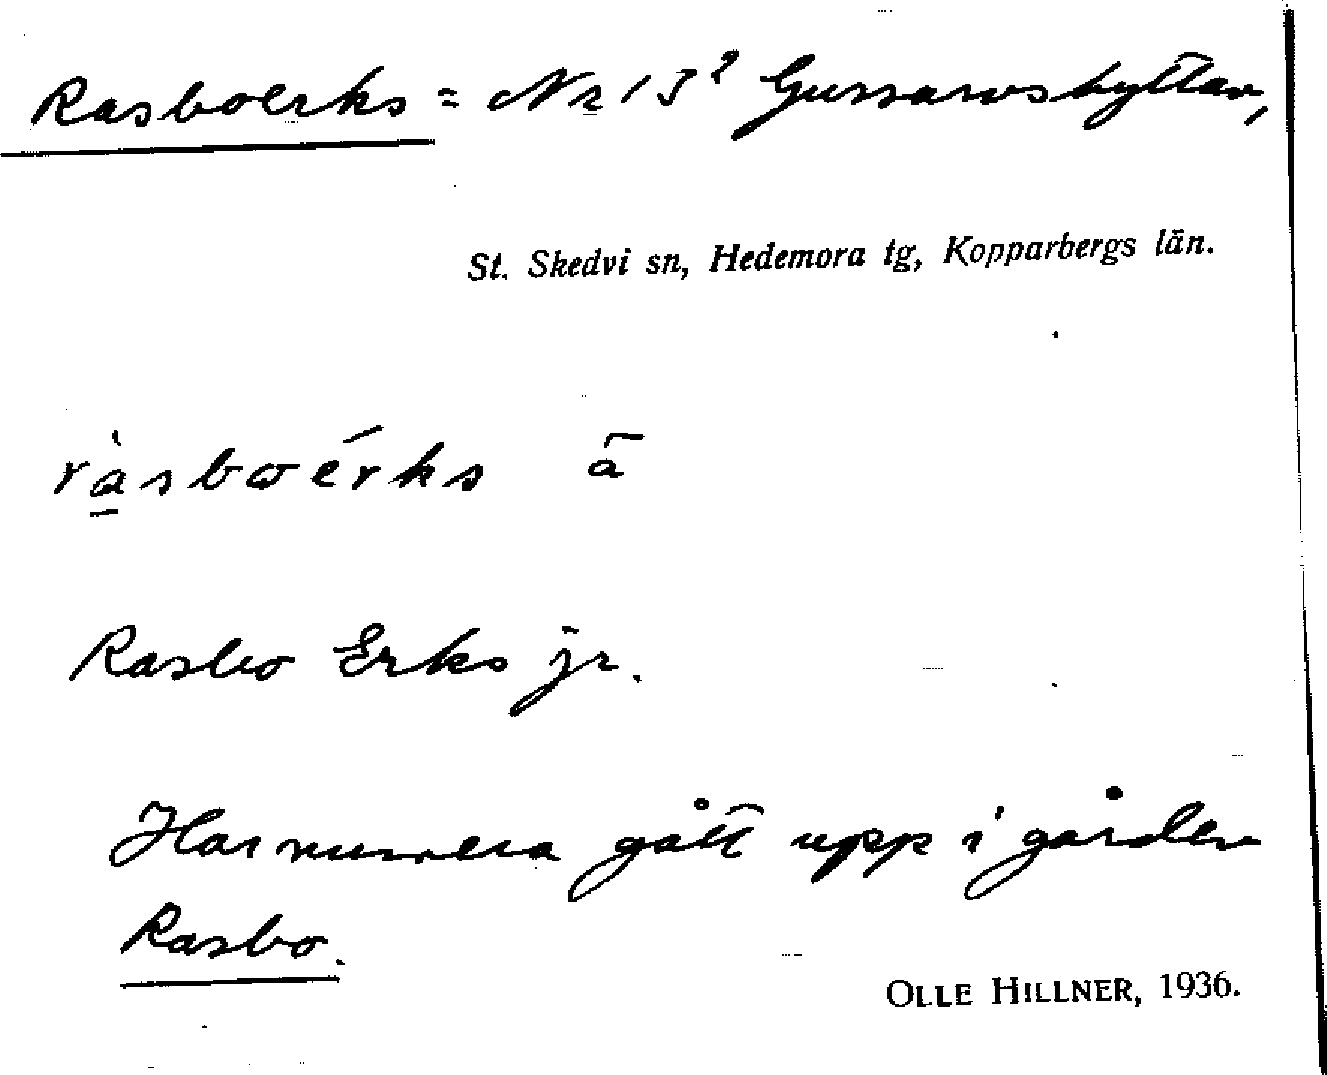 Rasboerks = Nr 13² Gussarvshyttan,
St. Skedvi sn, Hedemora tg, Kopparbergs län.
ràsboérks ā
Rasbo Erks jr.
Har numera gått upp i gården
Rasbo.
OLLE HILLNER, 1936.